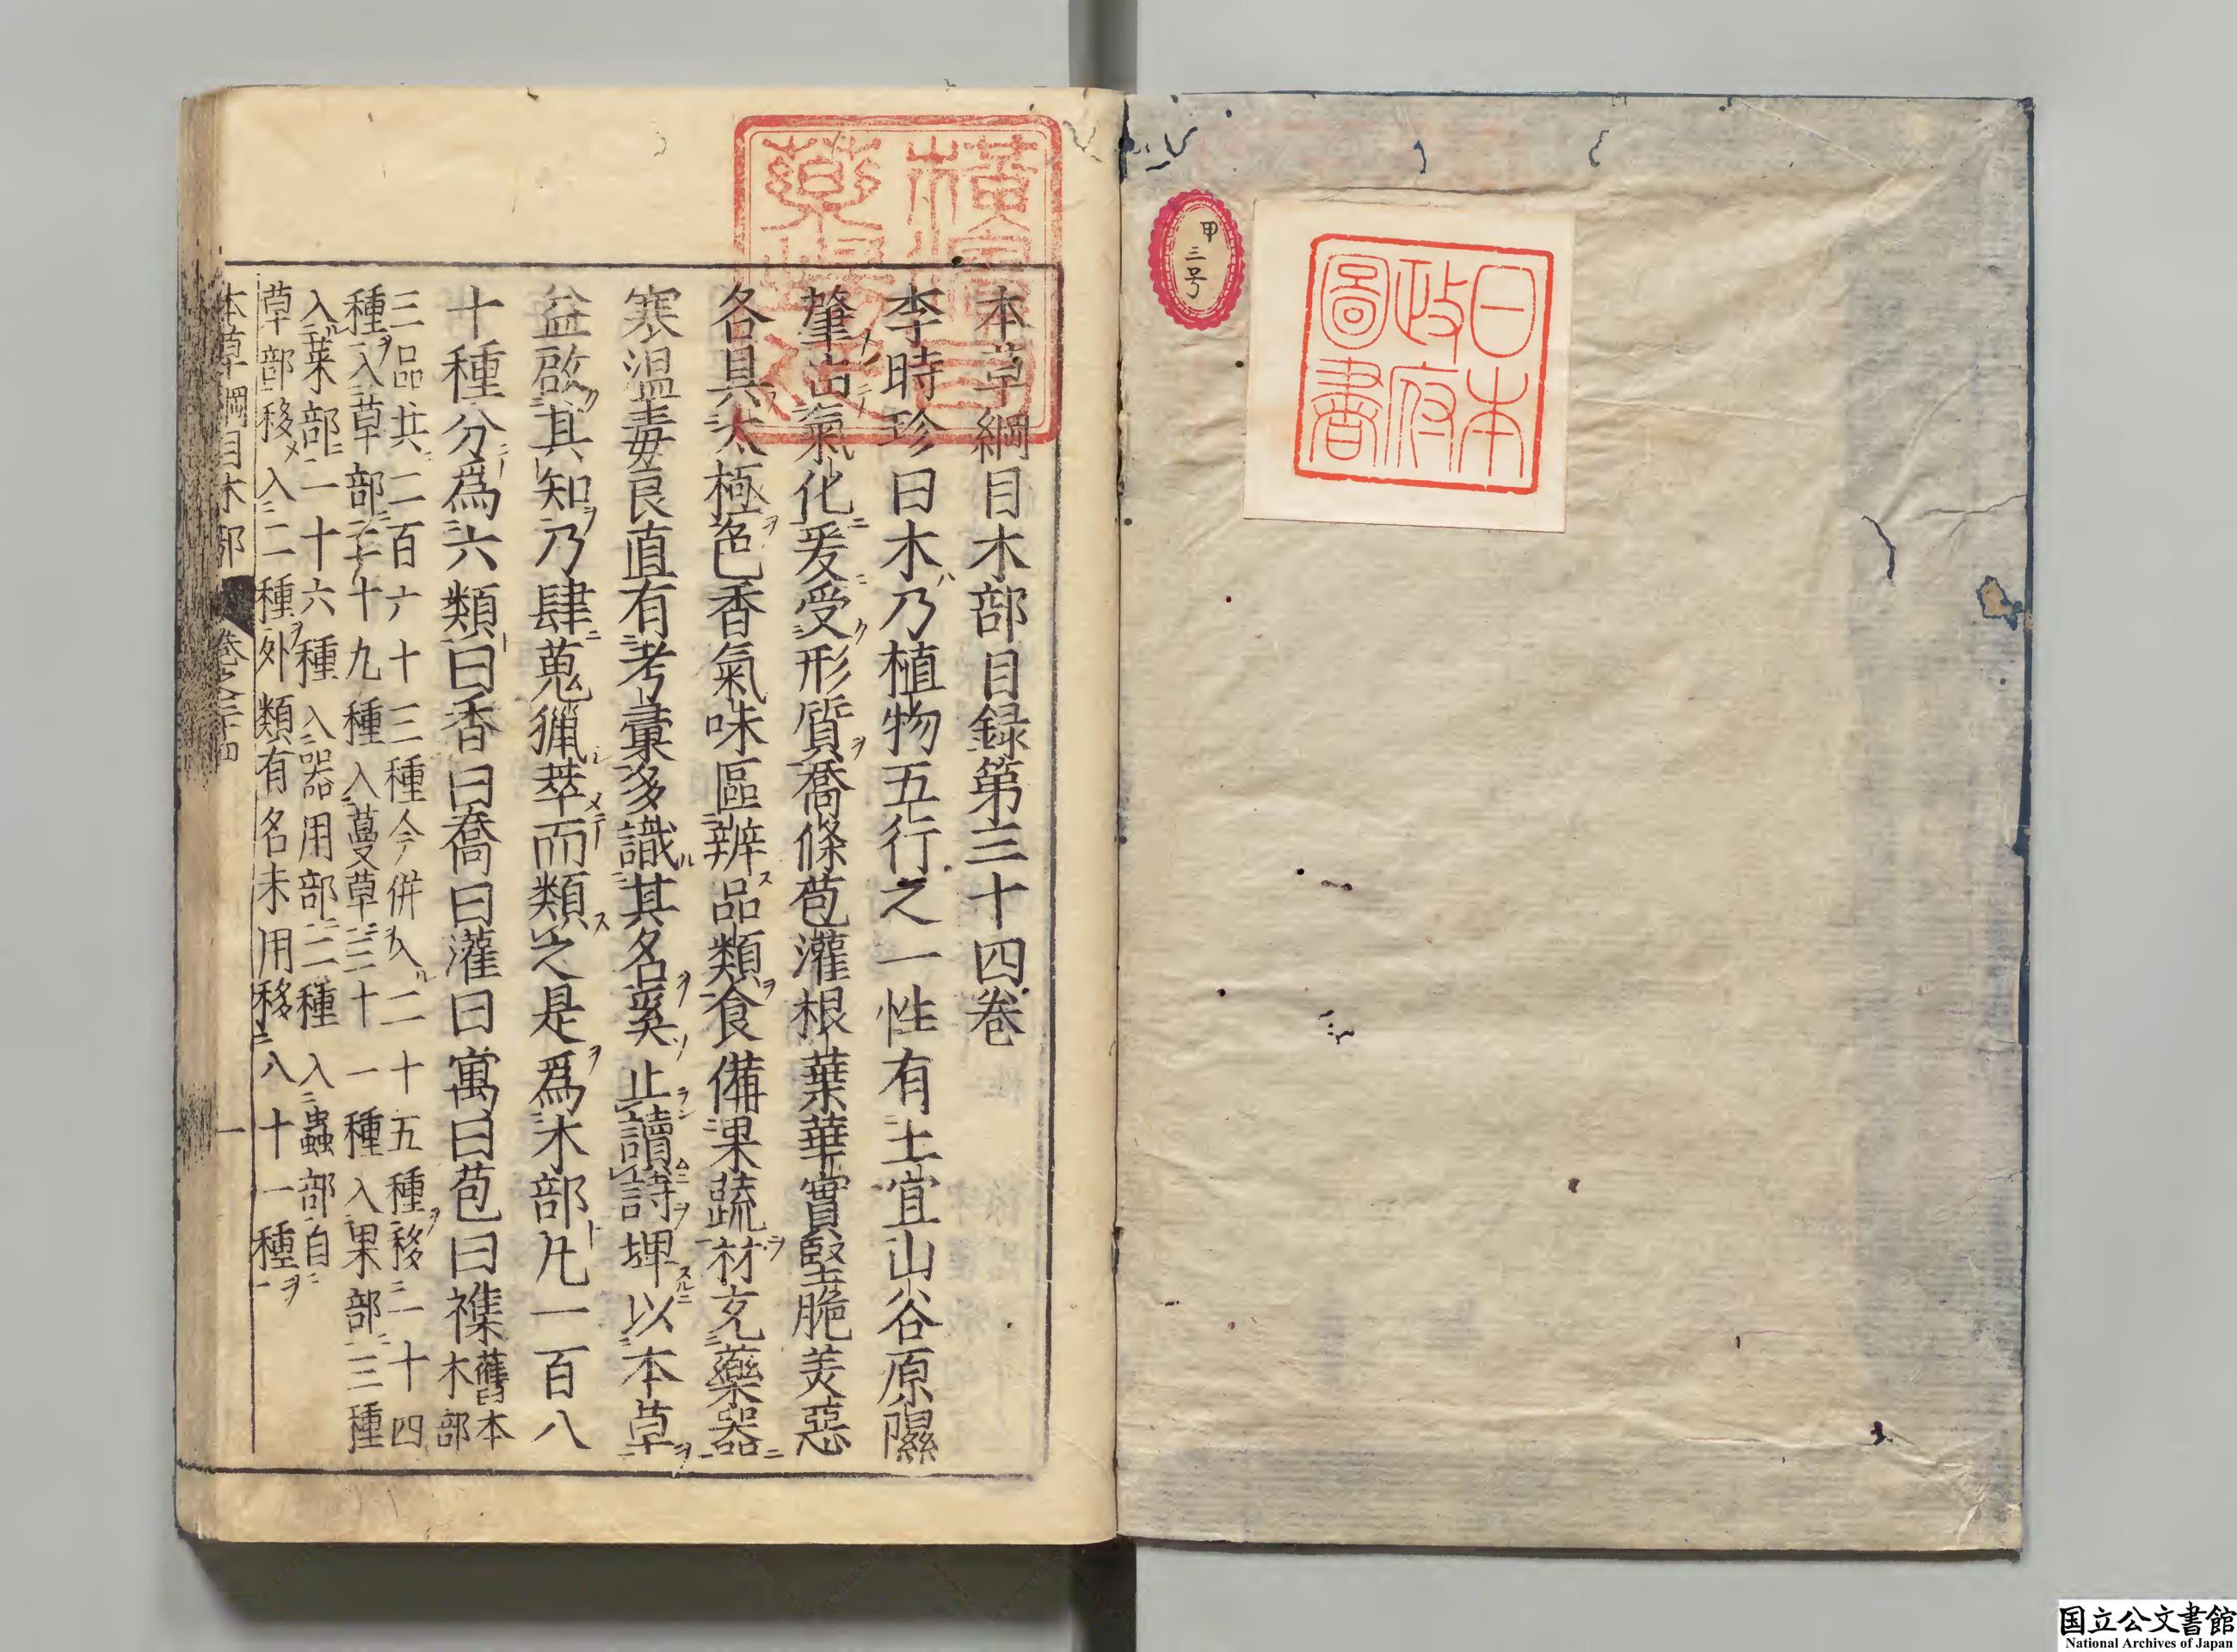 甲三号
日本
政府
圖書
本草綱目木部目録第三十四卷
李時珍曰木乃植物五行之一性有土宜山谷原隰
肇由氣化爰受形質喬條苞灌根葉華實堅脆美惡
各具太極色香氣味區辨品類食備果蔬材充藥器
寒温毒良直有考彙多識其名奚止讀詩埤以本草
益啟其知乃肆蒐獵萃而類之是爲木部凡一百八
十種分爲六類曰香曰喬曰灌曰寓曰苞曰襍舊本
木部
三品共二百六十三種今併入二十五種移二十四
種入草部二十九種入蔓草三十一種入果部三種
入菜部一十六種入器用部二種入蟲部自
草部移入二種外類有名未用移八十一種
本草綱目木部 卷之三十四 一
国立公文書館
National Archives of Japan